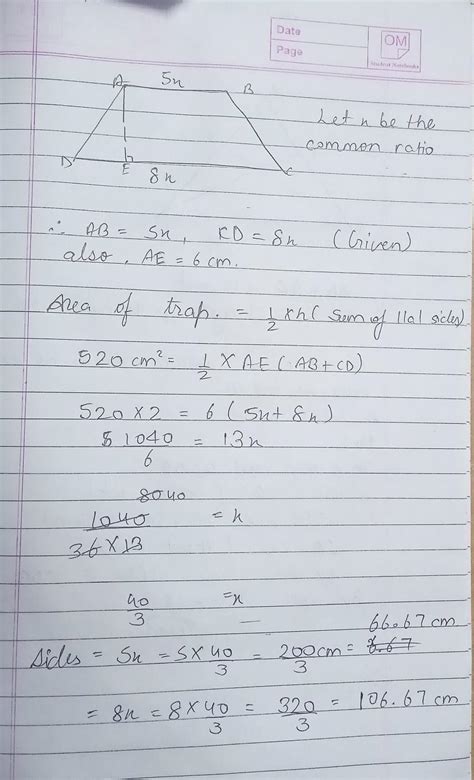 Date
Page
OM
Student Notebooks
A 5x B
Let x be the
common ratio
D E 8x C
∴ AB = 5x, CD = 8x (Given)
also, AE = 6 cm.
Area of trap. = 1/2 × h ( Sum of ||al sides)
520 cm² = 1/2 × AE ( AB + CD)
520 × 2 = 6 ( 5x + 8x )
1040/6 = 13x
80 40
1040/36 × 13 = x
40/3 = x
66.67 cm
Sides = 5x = 5 × 40/3 = 200/3 cm = 6.67
= 8x = 8 × 40/3 = 320/3 = 106.67 cm